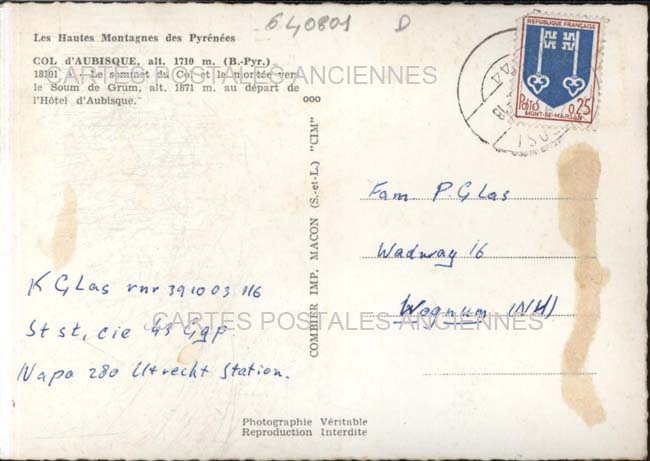 640801 D
Les Hautes Montagnes des Pyrénées
COL d'AUBISQUE, alt. 1710 m. (B.-Pyr.)
18101 - Le sommet du Col et la montée vers
le Soum de Grum, alt. 1871 m. au départ de
l'Hôtel d'Aubisque.
CARTES POSTALES ANCIENNES
REPUBLIQUE FRANÇAISE
POSTES
0,25
MONT-DE-MARSAN
COMBIER IMP. MACON (S.-et-L.) "CIM" ooo
Fam P. Glas
Wadway 16
Wognum (NH)
K Glas rnr 391003 116
St st, cie 43 Ggp.
Napo 280 Utrecht Station.
CARTES POSTALES ANCIENNES
Photographie Véritable
Reproduction Interdite